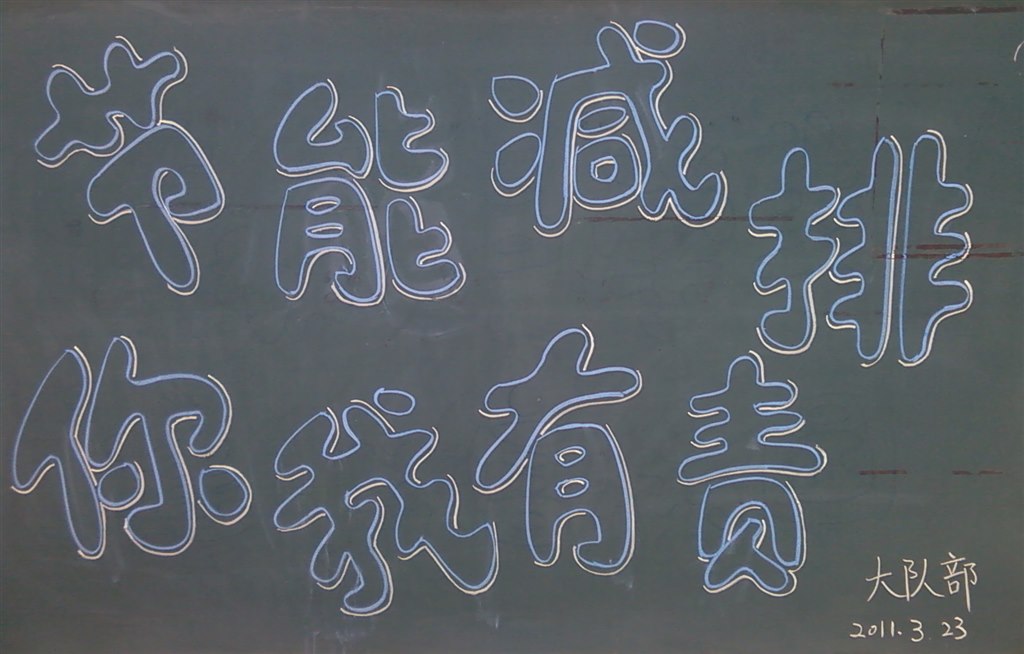 节能减排
你我有责
大队部
2011.3.23